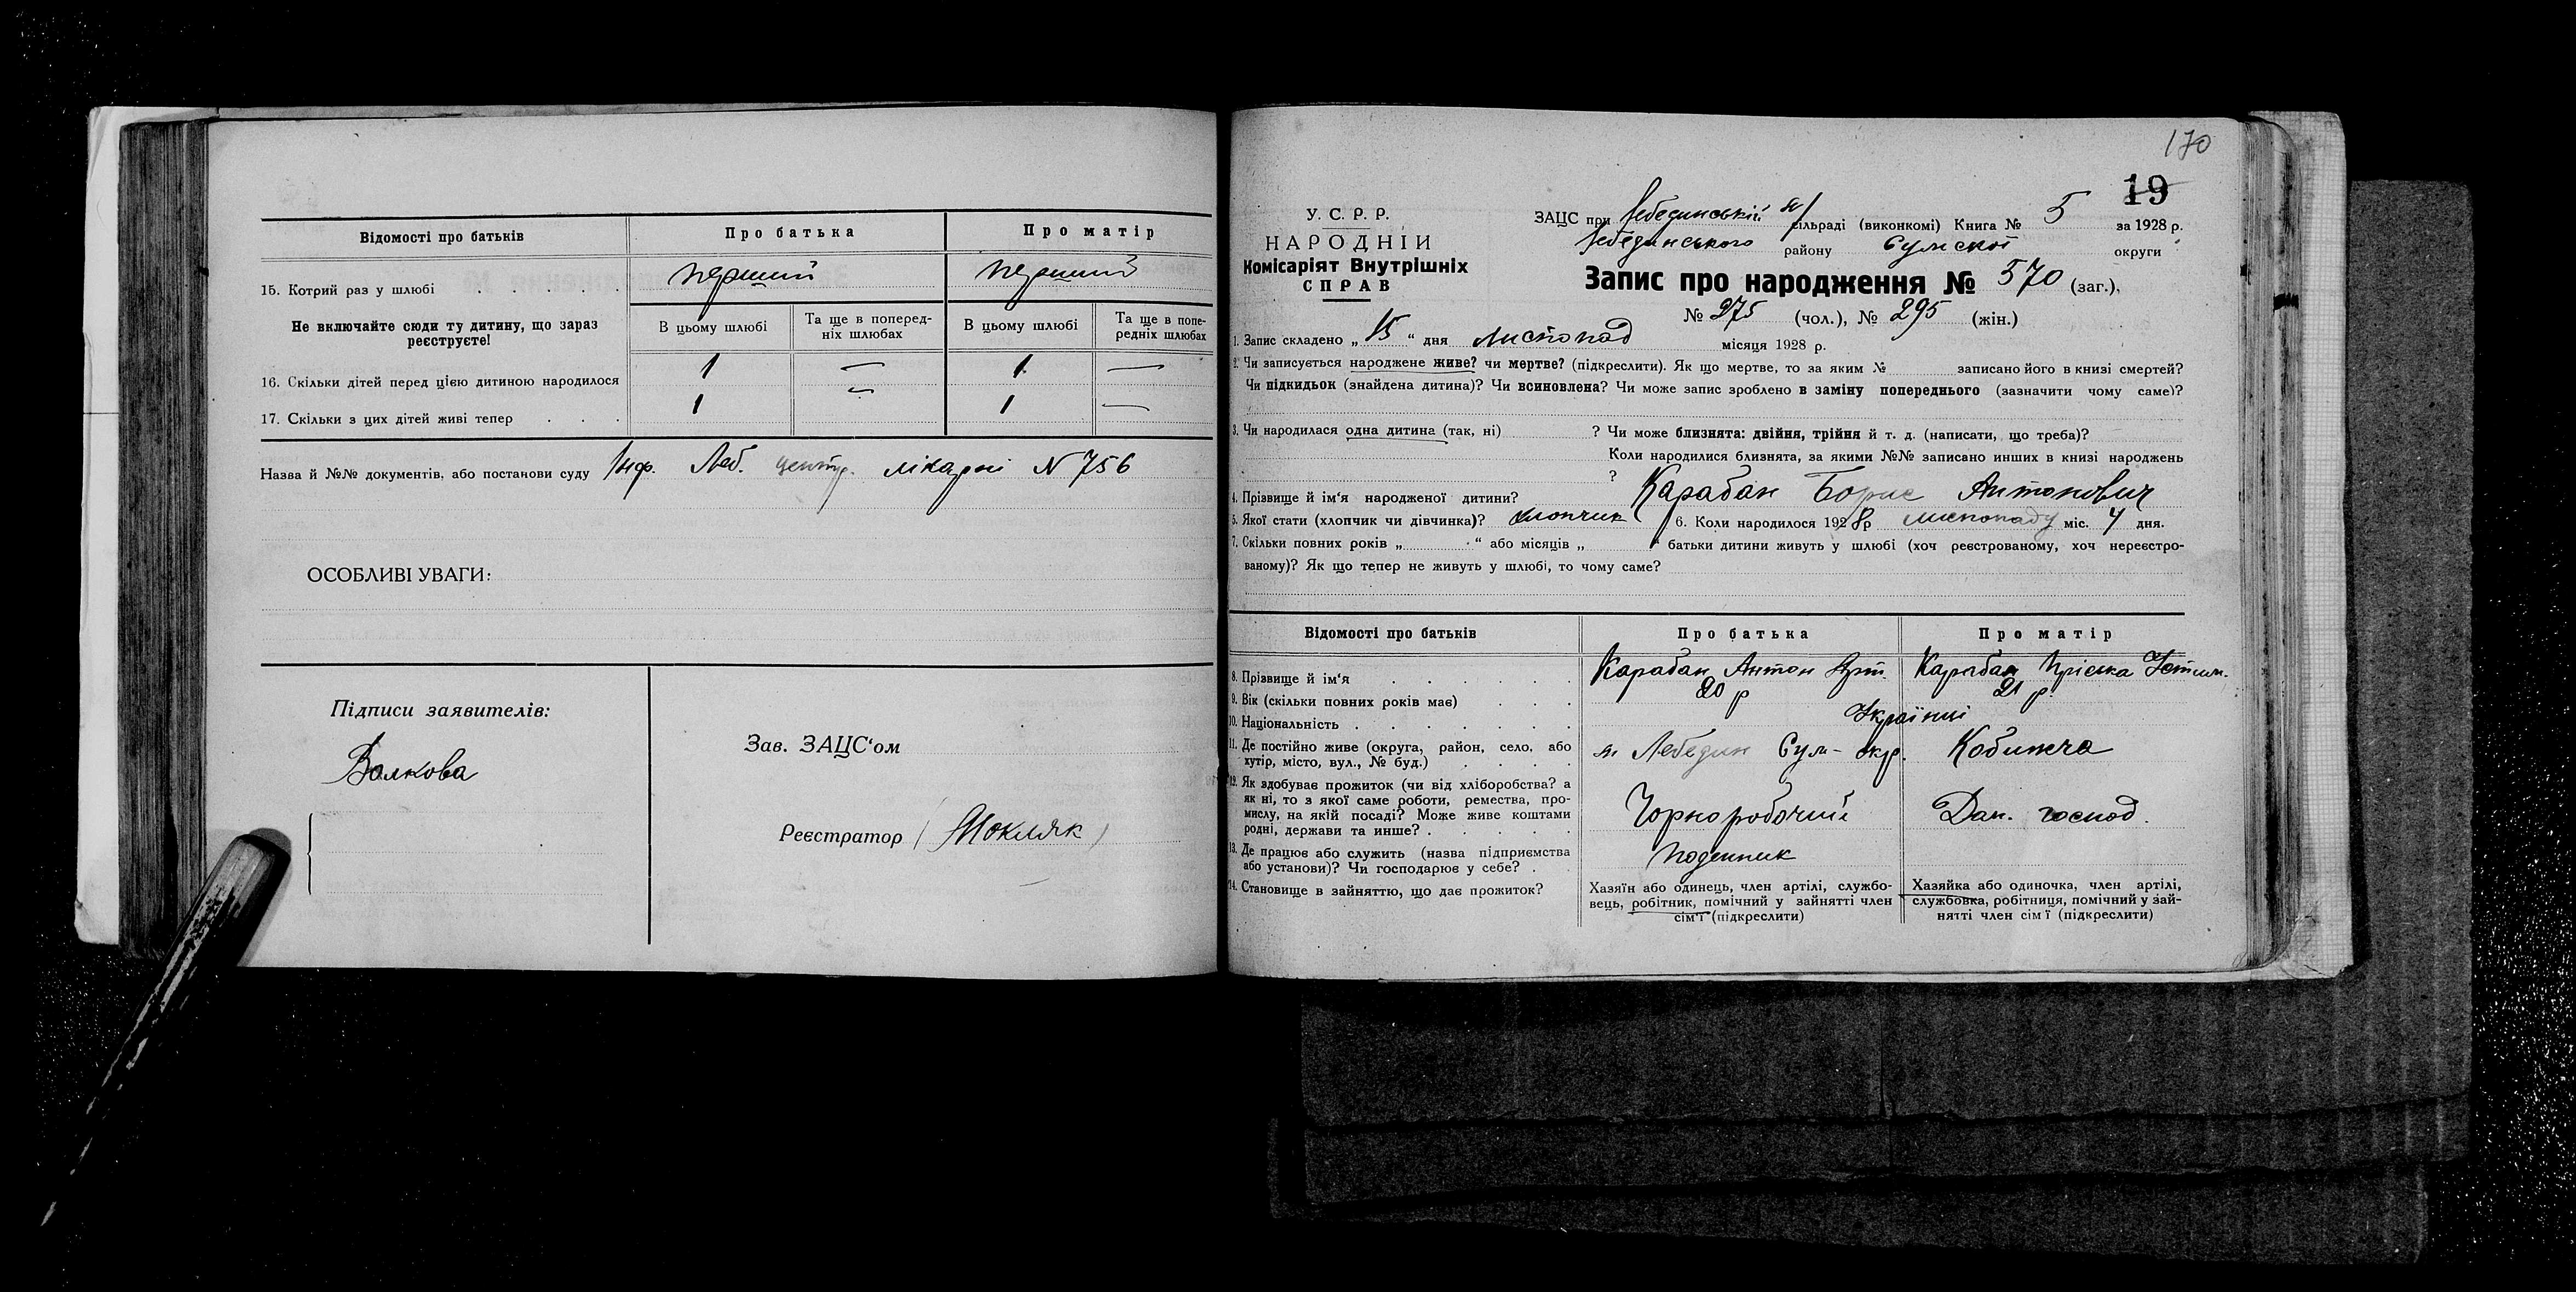 Відомості про батьків
Про батька
Про матір
15. Котрий раз у шлюбі
перший
перший
Не включайте сюди ту дитину, що зараз реєструєте!
В цьому шлюбі
Та ще в поперед-
ніх шлюбах
В цьому шлюбі
Та ще в попе-
редніх шлюбах
16. Скільки дітей перед цією дитиною народилося
1 — 1 —
17. Скільки з цих дітей живі тепер
1 — 1 —
Назва й №№ документів, або постанови суду Інф. Леб. центр. лікарні N 756
ОСОБЛИВІ УВАГИ:
Підписи заявителів:
Волкова
Зав. ЗАЦС‘ом
Реєстратор (Мокляк)
170
19
У. С. Р. Р.
НАРОДНІЙ
Комісаріят Внутрішніх
СПРАВ
ЗАЦС при Лебединській м/сільраді (виконкомі) Книга № 5 за 1928 р.
Лебединського району Сумскої округи
Запис про народження № 570 (заг.),
№ 275 (чол.), № 295 (жін.)
1. Запис складено „ 15 “ дня листопад місяця 1928 р.
2. Чи записується народжене живе? чи мертве? (підкреслити). Як що мертве, то за яким № записано його в книзі смертей?
Чи підкидьок (знайдена дитина)? Чи всиновлена? Чи може запис зроблено в заміну попереднього (зазначити чому саме)?
3. Чи народилася одна дитина (так, ні) ? Чи може близнята: двійня, трійня й т. д. (написати, що треба)?
Коли народилися близнята, за якими №№ записано инших в книзі народжень
?
4. Прізвище й ім‘я народженої дитини? Карабан Борис Антонович
5. Якої стати (хлопчик чи дівчинка)? хлопчик 6. Коли народилося 1928р листопаду міс. 7 дня.
7. Скільки повних років „ “ або місяців „ “ батьки дитини живуть у шлюбі (хоч реєстрованому, хоч нереєстро-
ваному)? Як що тепер не живуть у шлюбі, то чому саме?
Відомості про батьків
Про батька
Про матір
8. Прізвище й ім‘я
Карабан Антон
Карабан Пріська Устим.
9. Вік (скільки повних років має)
20 р
21 р
10. Національність
Українці
11. Де постійно живе (округа, район, село, або
хутір, місто, вул., № буд.)
м Лебедин Сум- окр.
12. Як здобуває прожиток (чи від хліборобства? а
як ні, то з якої саме роботи, ремества, про-
мислу, на якій посаді? Може живе коштами
родні, держави та инше?
Чорноробочий
Дом. господ.
13. Де працює або служить (назва підприємства
або установи)? Чи господарює у себе?
поденник
14. Становище в зайняттю, що дає прожиток?
Хазяїн або одинець, член артілі, службо-
вець, робітник, помічний у зайнятті член
сім‘ї (підкреслити)
Хазяйка або одиночка, член артілі,
службовка, робітниця, помічний у зай-
нятті член сім‘ї (підкреслити)